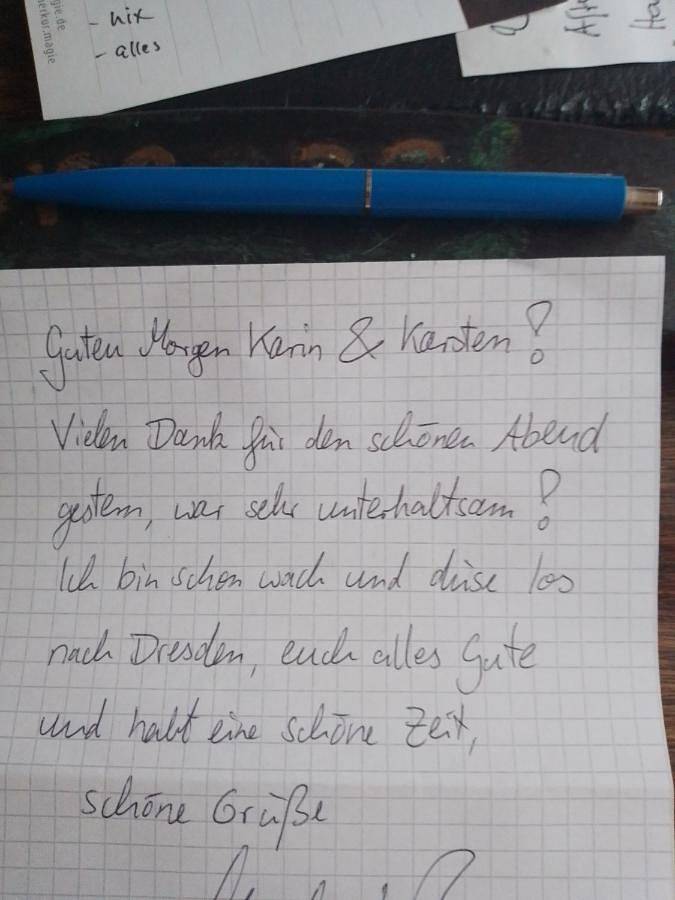 gie.de
erkur.magie
- nix
- alles
Guten Morgen Karin & Karsten!
Vielen Dank für den schönen Abend
gestern, war sehr unterhaltsam!
Ich bin schon wach und düse los
nach Dresden, euch alles Gute
und habt eine schöne Zeit,
schöne Grüße